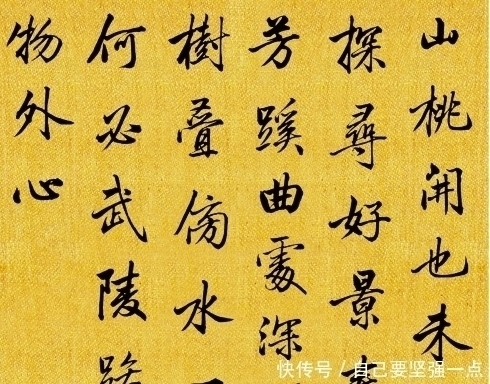 山桃開也未
探尋好景
芳蹊曲處深
樹叠傍水
何必武陵
物外心
快传号 / 自己要坚强一点